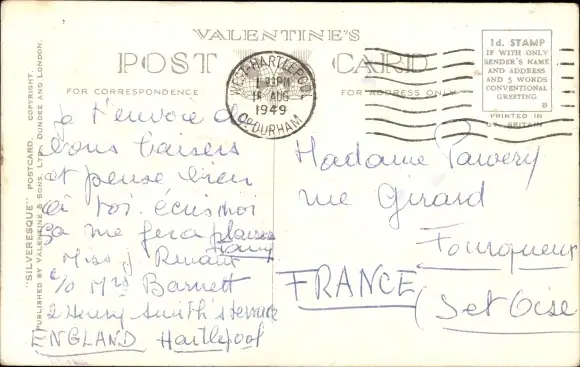 VALENTINE'S
POST CARD
FOR CORRESPONDENCE
FOR ADDRESS ONLY
1d. STAMP
IF WITH ONLY
SENDER'S NAME
AND ADDRESS
AND 5 WORDS
CONVENTIONAL
GREETING
PRINTED IN
GT. BRITAIN
WEST HARTLEPOOL
PM
16 AUG
1949
CO. DURHAM
"SILVERESQUE" POSTCARD. COPYRIGHT.
PUBLISHED BY VALENTINE & SONS, LTD., DUNDEE AND LONDON.
Je t'envoie de
bons baisers
et pense bien
à toi. écris moi
ça me fera plaisir
Miss J.
c/o Mrs Barnett
2 Henry Smith's terrace
ENGLAND Hartlepool
Madame
rue Girard
Fourqueux
FRANCE (Set Oise